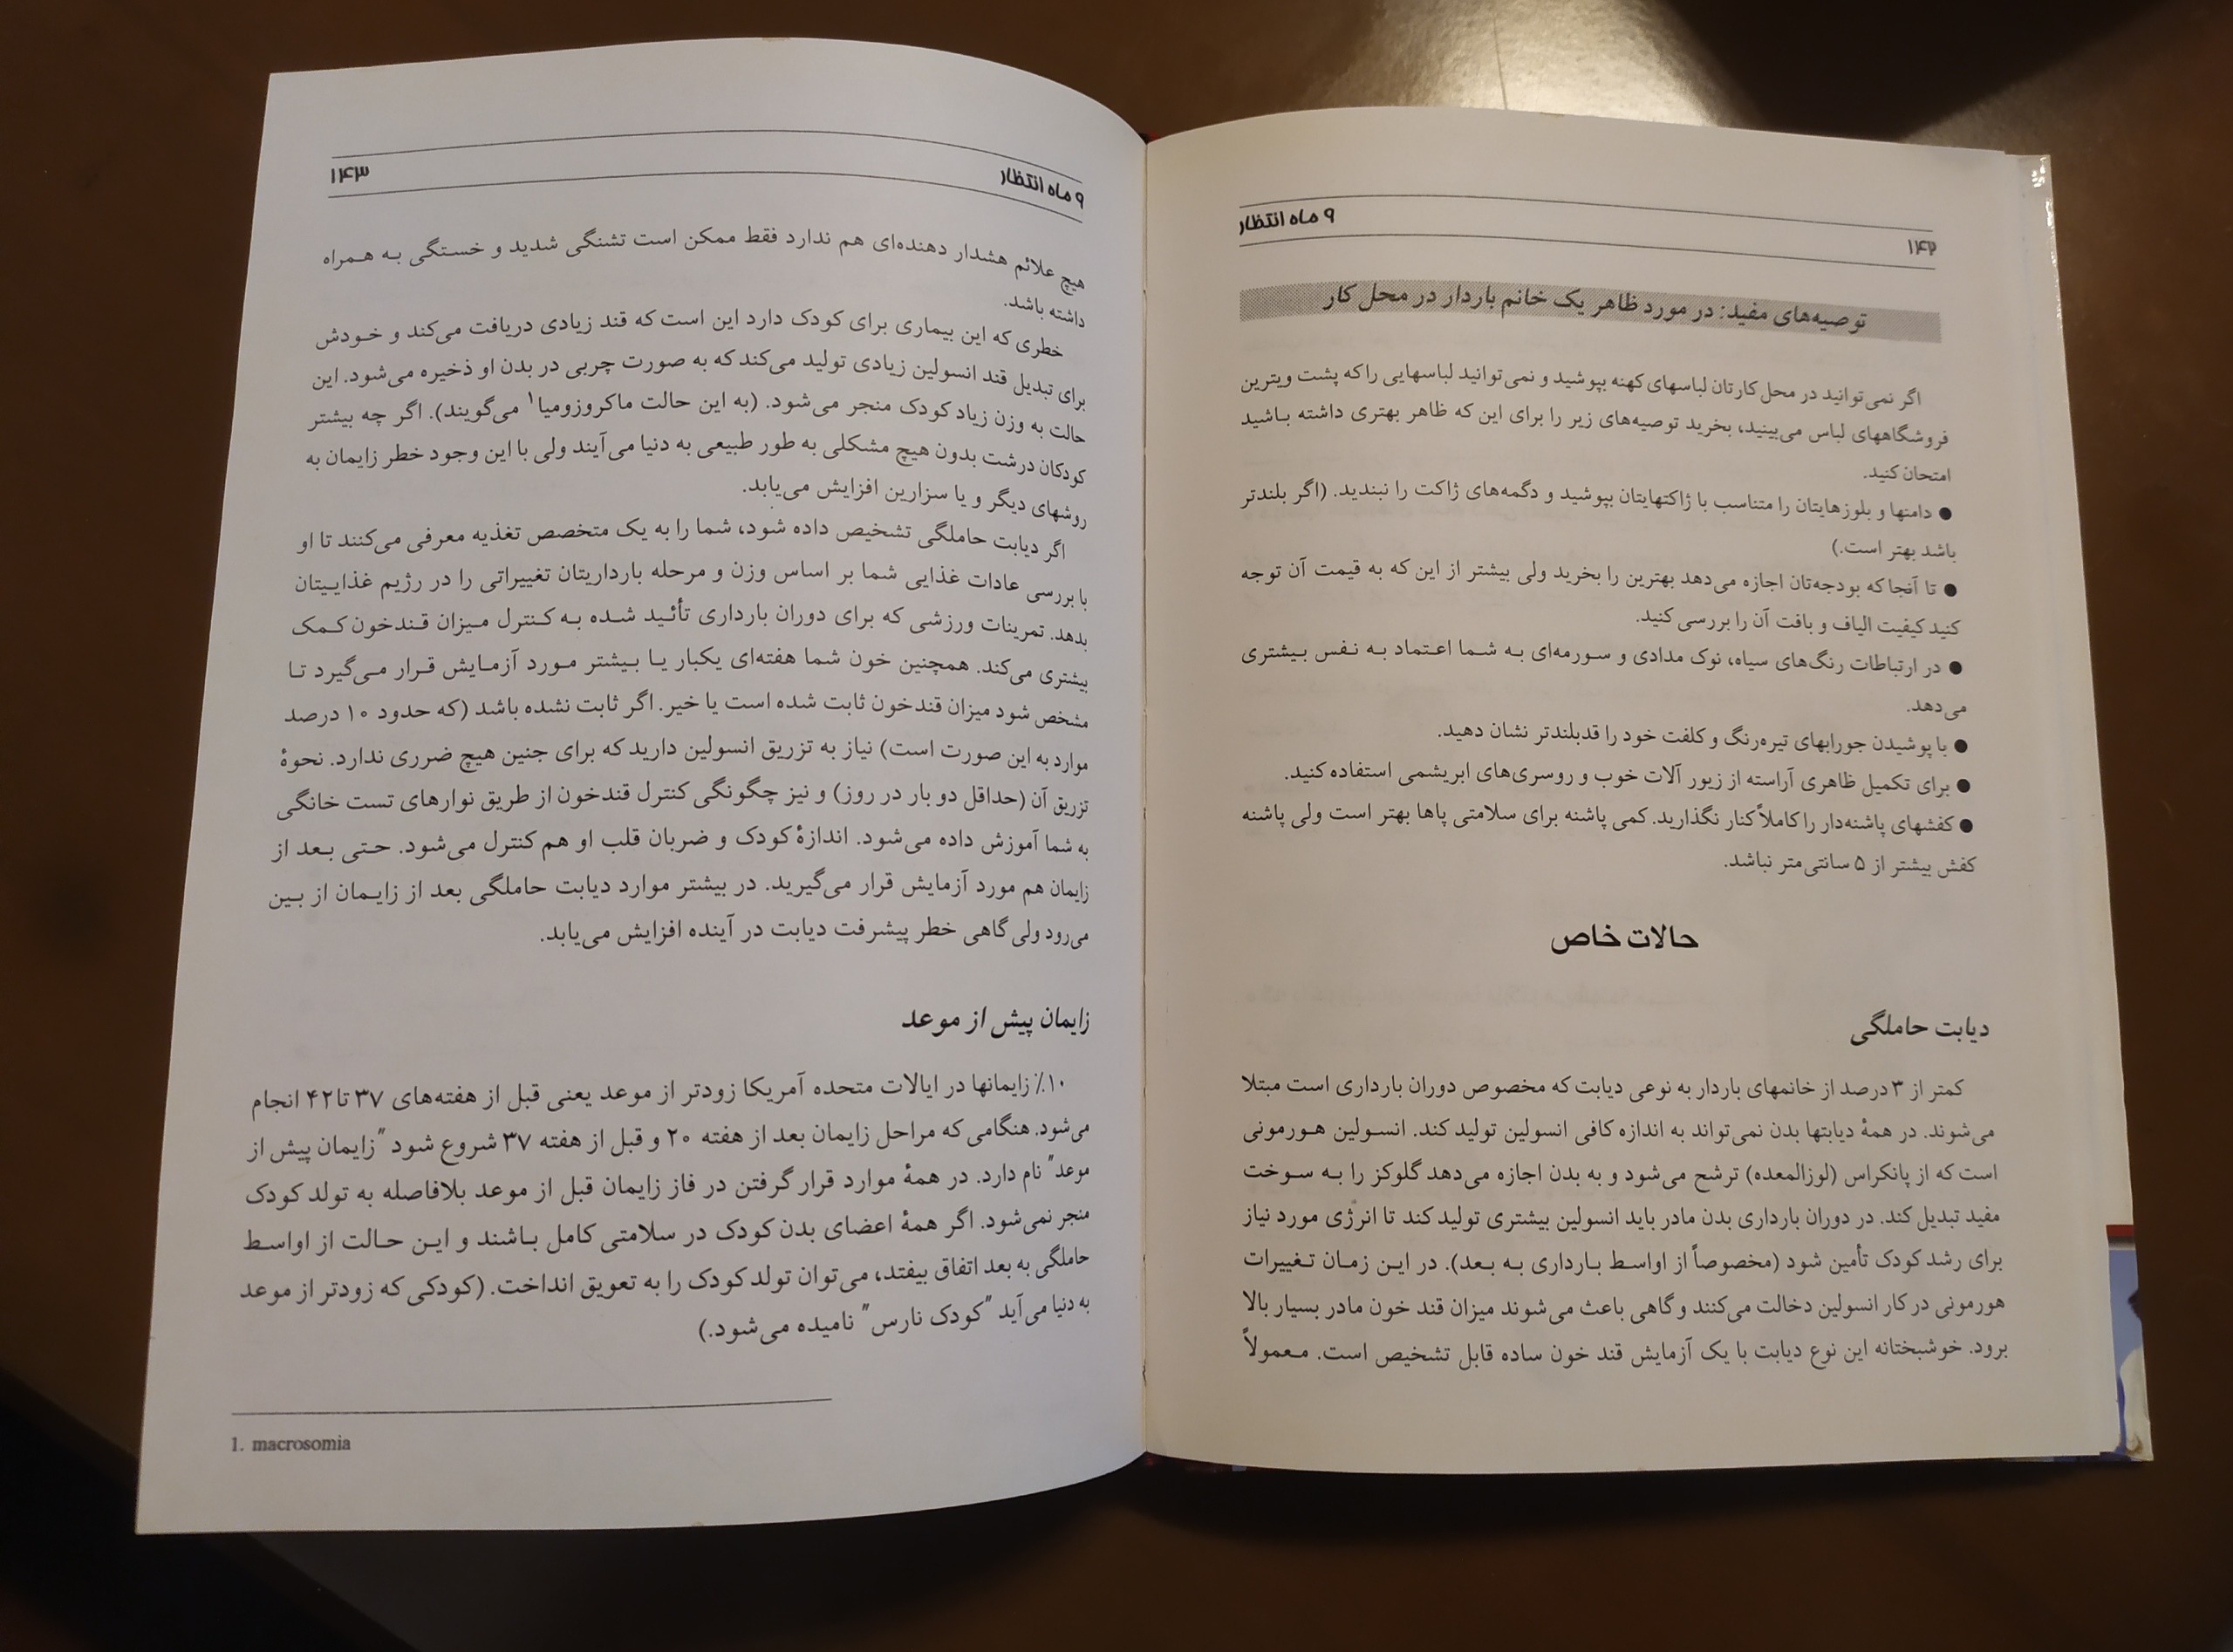 ۱۴۲
۹ ماه انتظار
توصیه‌های مفید: در مورد ظاهر یک خانم باردار در محل کار
اگر نمی‌توانید در محل کارتان لباسهای کهنه بپوشید و نمی‌توانید لباسهایی را که پشت ویترین
فروشگاههای لباس می‌بینید، بخرید توصیه‌های زیر را برای این که ظاهر بهتری داشته باشید
امتحان کنید.
● دامنها و بلوزهایتان را متناسب با ژاکتهایتان بپوشید و دگمه‌های ژاکت را نبندید. (اگر بلندتر
باشد بهتر است.)
● تا آنجا که بودجه‌تان اجازه می‌دهد بهترین را بخرید ولی بیشتر از این که به قیمت آن توجه
کنید کیفیت الیاف و بافت آن را بررسی کنید.
● در ارتباطات رنگ‌های سیاه، نوک مدادی و سورمه‌ای به شما اعتماد به نفس بیشتری
می‌دهد.
● با پوشیدن جورابهای تیره‌رنگ و کلفت خود را قدبلندتر نشان دهید.
● برای تکمیل ظاهری آراسته از زیور آلات خوب و روسری‌های ابریشمی استفاده کنید.
● کفشهای پاشنه‌دار را کاملاً کنار نگذارید. کمی پاشنه برای سلامتی پاها بهتر است ولی پاشنه
کفش بیشتر از ۵ سانتی‌متر نباشد.
حالات خاص
دیابت حاملگی
کمتر از ۳ درصد از خانمهای باردار به نوعی دیابت که مخصوص دوران بارداری است مبتلا
می‌شوند. در همهٔ دیابتها بدن نمی‌تواند به اندازه کافی انسولین تولید کند. انسولین هورمونی
است که از پانکراس (لوزالمعده) ترشح می‌شود و به بدن اجازه می‌دهد گلوکز را به سوخت
مفید تبدیل کند. در دوران بارداری بدن مادر باید انسولین بیشتری تولید کند تا انرژی مورد نیاز
برای رشد کودک تأمین شود (مخصوصاً از اواسط بارداری به بعد). در این زمان تغییرات
هورمونی در کار انسولین دخالت می‌کنند و گاهی باعث می‌شوند میزان قند خون مادر بسیار بالا
برود. خوشبختانه این نوع دیابت با یک آزمایش قند خون ساده قابل تشخیص است. معمولاً
۹ ماه انتظار
۱۴۳
هیچ علائم هشدار دهنده‌ای هم ندارد فقط ممکن است تشنگی شدید و خستگی به همراه
داشته باشد.
خطری که این بیماری برای کودک دارد این است که قند زیادی دریافت می‌کند و خودش
برای تبدیل قند انسولین زیادی تولید می‌کند که به صورت چربی در بدن او ذخیره می‌شود. این
حالت به وزن زیاد کودک منجر می‌شود. (به این حالت ماکروزومیا۱ می‌گویند). اگر چه بیشتر
کودکان درشت بدون هیچ مشکلی به طور طبیعی به دنیا می‌آیند ولی با این وجود خطر زایمان به
روشهای دیگر و یا سزارین افزایش می‌یابد.
اگر دیابت حاملگی تشخیص داده شود، شما را به یک متخصص تغذیه معرفی می‌کنند تا او
با بررسی عادات غذایی شما بر اساس وزن و مرحله بارداریتان تغییراتی را در رژیم غذاییتان
بدهد. تمرینات ورزشی که برای دوران بارداری تأئید شده به کنترل میزان قندخون کمک
بیشتری می‌کند. همچنین خون شما هفته‌ای یکبار یا بیشتر مورد آزمایش قرار می‌گیرد تا
مشخص شود میزان قندخون ثابت شده است یا خیر. اگر ثابت نشده باشد (که حدود ۱۰ درصد
موارد به این صورت است) نیاز به تزریق انسولین دارید که برای جنین هیچ ضرری ندارد. نحوهٔ
تزریق آن (حداقل دو بار در روز) و نیز چگونگی کنترل قندخون از طریق نوارهای تست خانگی
به شما آموزش داده می‌شود. اندازهٔ کودک و ضربان قلب او هم کنترل می‌شود. حتی بعد از
زایمان هم مورد آزمایش قرار می‌گیرید. در بیشتر موارد دیابت حاملگی بعد از زایمان از بین
می‌رود ولی گاهی خطر پیشرفت دیابت در آینده افزایش می‌یابد.
زایمان پیش از موعد
۱۰٪ زایمانها در ایالات متحده آمریکا زودتر از موعد یعنی قبل از هفته‌های ۳۷ تا ۴۲ انجام
می‌شود. هنگامی که مراحل زایمان بعد از هفته ۲۰ و قبل از هفته ۳۷ شروع شود "زایمان پیش از
موعد" نام دارد. در همهٔ موارد قرار گرفتن در فاز زایمان قبل از موعد بلافاصله به تولد کودک
منجر نمی‌شود. اگر همهٔ اعضای بدن کودک در سلامتی کامل باشند و این حالت از اواسط
حاملگی به بعد اتفاق بیفتد، می‌توان تولد کودک را به تعویق انداخت. (کودکی که زودتر از موعد
به دنیا می‌آید "کودک نارس" نامیده می‌شود.)
1. macrosomia